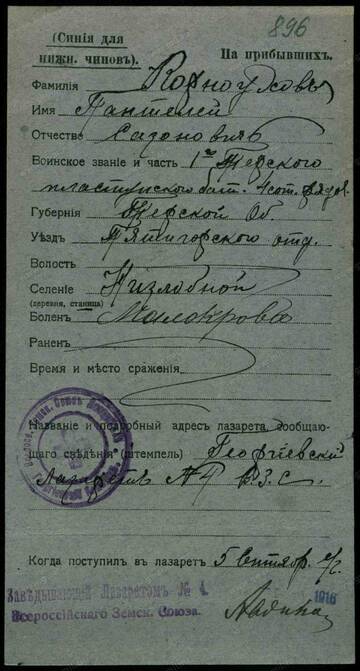 896
(Синія для
нижн. чиновъ).
На прибывшихъ.
Фамилія Корноуховъ
Имя Пантелей
Отчество Садоновичъ
Воинское званіе и часть 1го Терского
пластунского бат. 4 сот. рядов.
Губернія Терской Об.
Уѣздъ Пятигорского отд.
Волость
Селеніе Незлобной
(деревня, станица)
Боленъ Малокровіе
Раненъ
Время и мѣсто сраженія
Названіе и подробный адресъ лазарета, сообщаю-
щаго свѣдѣнія (штемпель) Георгіевскій
Лазаретъ №4 В.З.С.
Когда поступилъ въ лазаретъ 5 Сентябр. с/г.
Завѣдывающей Лазаретомъ № 4.
1916
Всероссійскаго Земск. Союза.